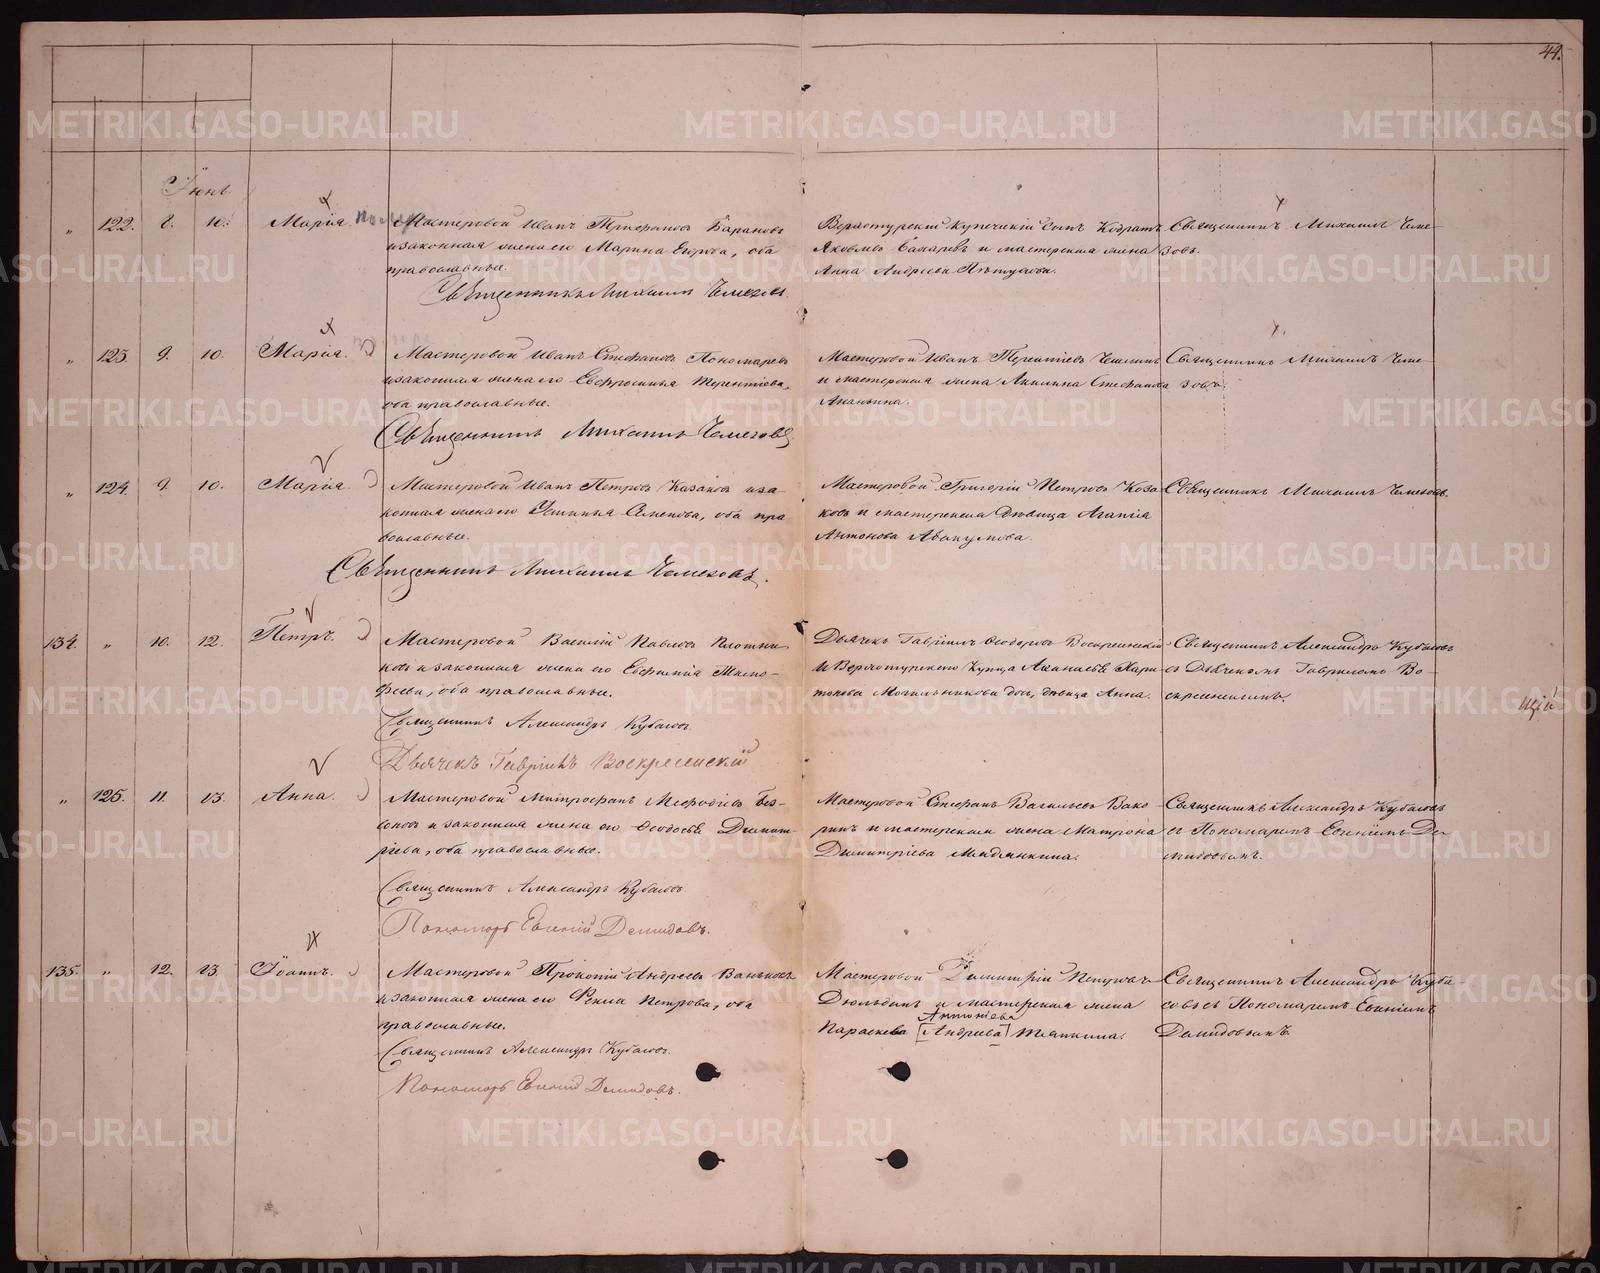 44.
Іюнь
" 122. 8. 10. Марія.
Мастеровой Иванъ Трифоновъ Барановъ
и законная жена его Марина, оба
православные.
Священникъ Михаилъ Чемезовъ.
Верхотурскій купеческій сынъ
Яковлевъ и мастерская жена
Анна Андреева
Священникъ Михаилъ Чеме-
зовъ.
" 123. 9. 10. Марія.
Мастеровой Иванъ Стефановъ Пономаревъ
и законная жена его Евфросинья Терентіева,
оба православные.
Священникъ Михаилъ Чемезовъ
Мастеровой Иванъ Терентіевъ
и мастерская жена Акилина Стефанова
Ананьина.
Священникъ Михаилъ Чеме-
зовъ.
" 124. 9. 10. Марія.
Мастеровой Иванъ Петровъ Казаковъ и за-
конная жена его Устинья Семенова, оба пра-
вославные.
Священникъ Михаилъ Чемезовъ.
Мастеровой Григорій Петровъ Каза-
ковъ и мастерская дѣвица Агапія
Антонова Абакумова.
Священникъ Михаилъ Чемезовъ.
134. " 10. 12. Петръ.
Мастеровой Василій Павловъ Плотни-
ковъ и законная жена его Евфимія Тимо-
феева, оба православные.
Священникъ Александръ Кубасовъ
Дьячекъ Гавріилъ Воскресенскій
Дьячекъ Гавріилъ Ѳеодоровъ Воскресенскій
и Верхотурскаго купца Аѳанасія Хари-
тонова Могильникова дочь, дѣвица Анна.
Священникъ Александръ Кубасовъ
съ Дьячекомъ Гавріиломъ Во-
скресенскимъ.
" 125. 11. 13. Анна.
Мастеровой Митрофанъ Меѳодіевъ Без-
соновъ и законная жена его Ѳеодосія Димит-
ріева, оба православные.
Священникъ Александръ Кубасовъ
Пономарь Евгеній Демидовъ.
Мастеровой Стефанъ Васильевъ Вако-
ринъ и мастерская жена Матрона
Димитріева
Священникъ Александръ Кубасовъ
съ Пономаремъ Евгеніемъ Де-
мидовымъ.
135. " 12. 13. Іоаннъ.
Мастеровой Прокопій Андреевъ
и законная жена его Ѳекла Петрова, оба
православные.
Священникъ Александръ Кубасовъ.
Пономарь Евгеній Демидовъ.
Мастеровой Димитрій Петровъ
и мастерская жена
Антоніева
Параскева [Андреева] Тяпкина.
Священникъ Александръ Куба-
совъ съ Пономаремъ Евгеніемъ
Демидовымъ.
METRIKI.GASO-URAL.RU